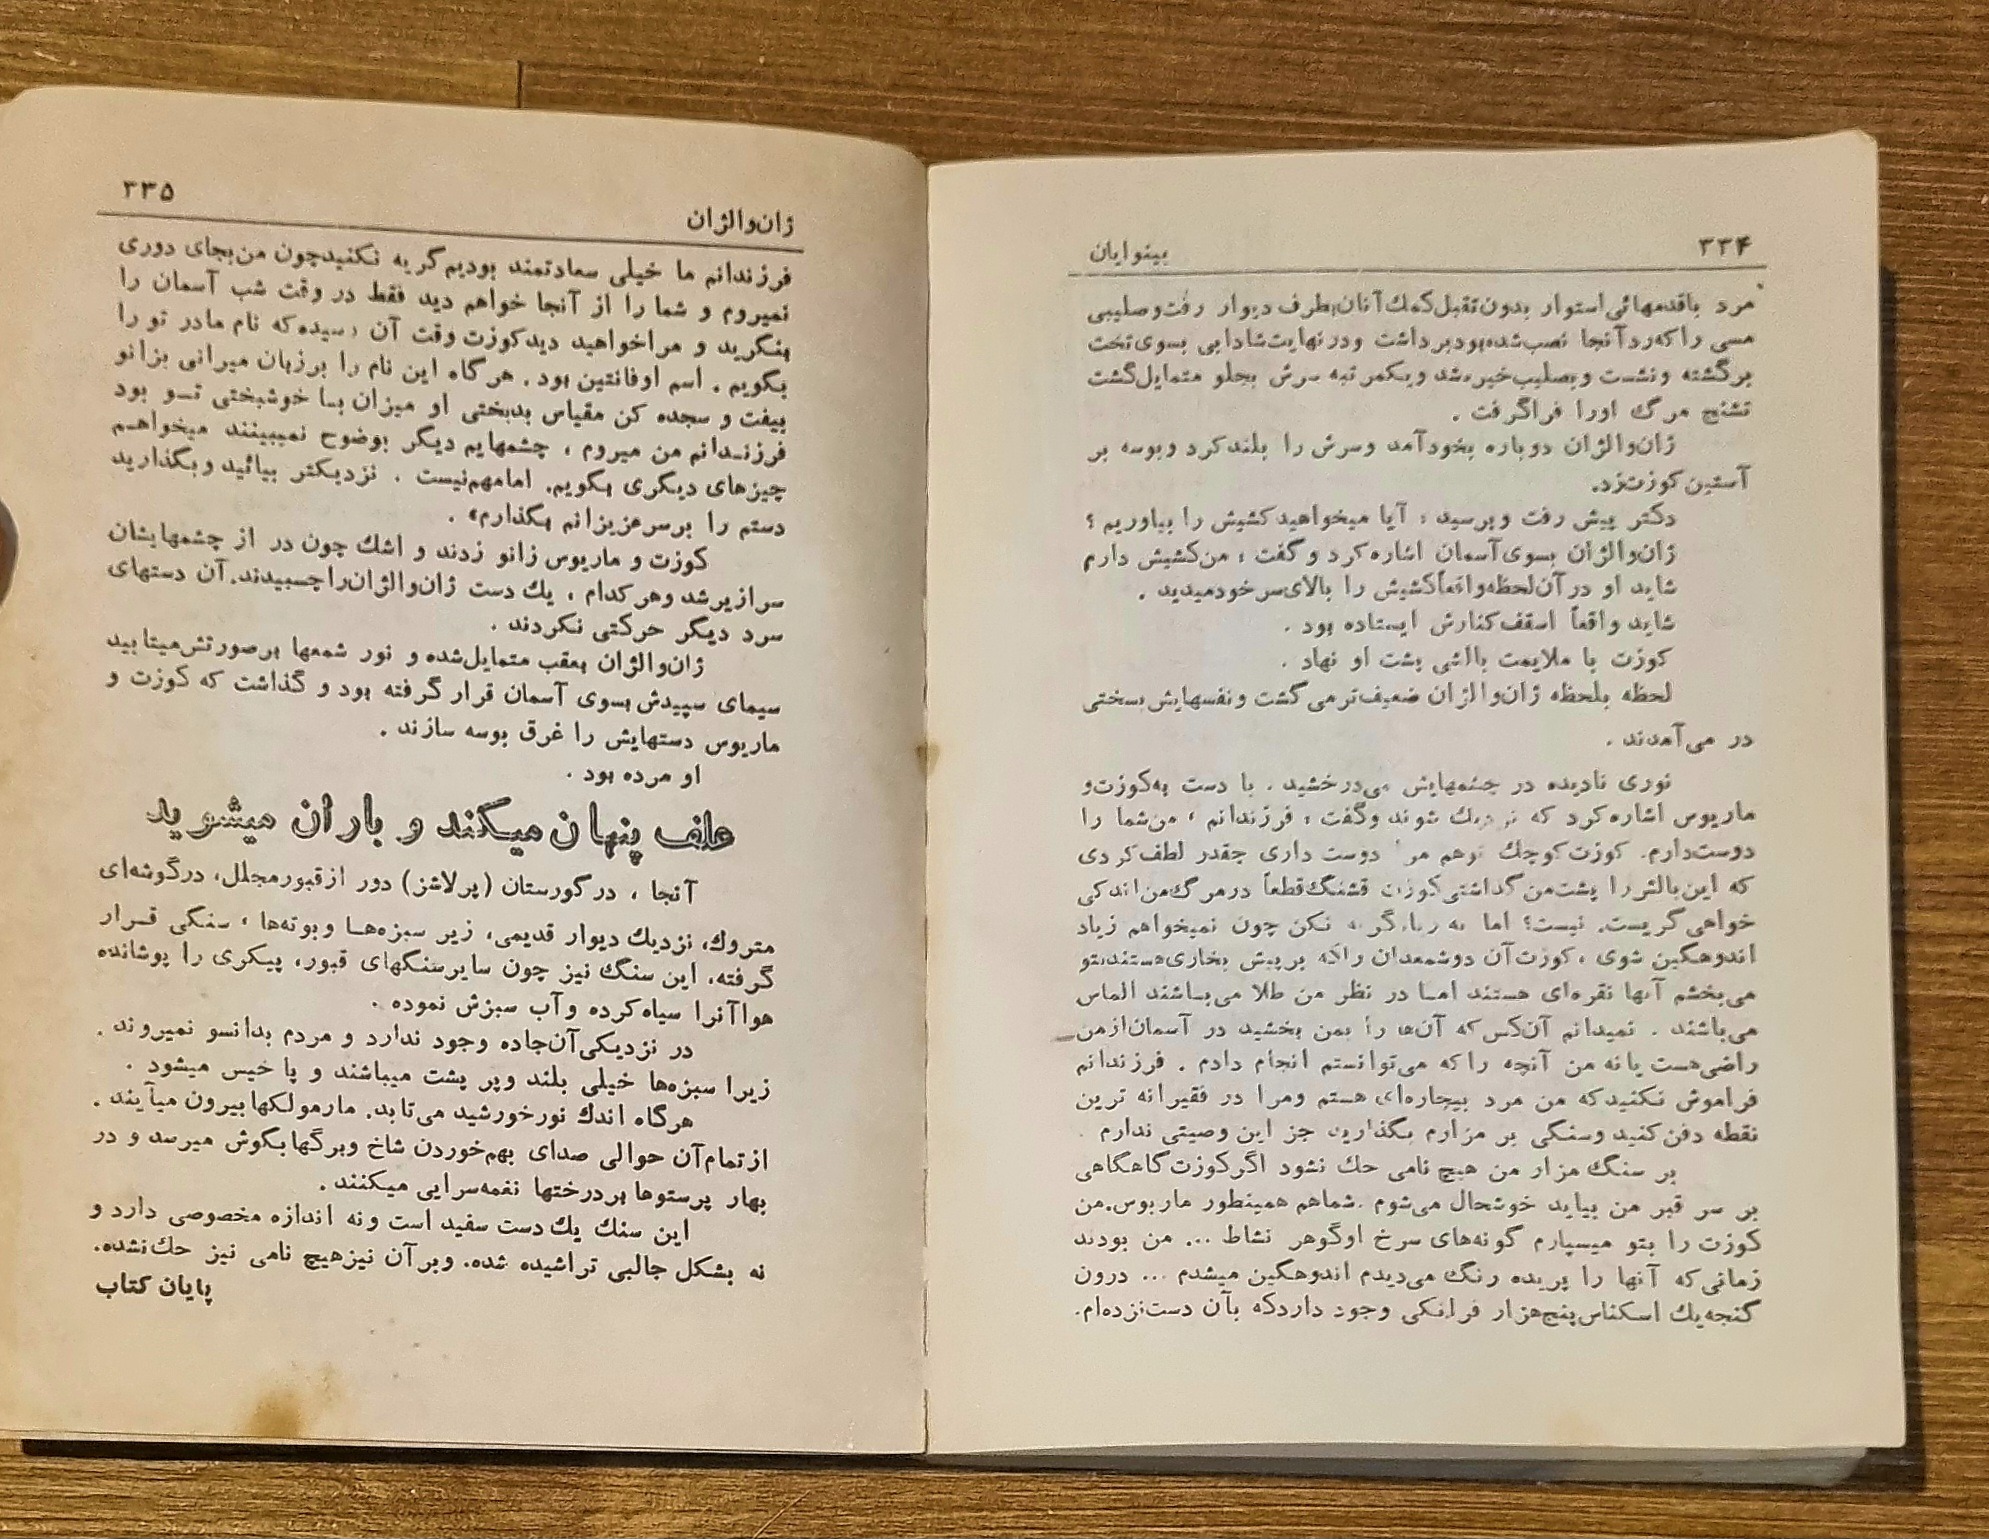 ۳۳۴
بینوایان
مرد باقدمهائی استوار بدون تقبل کمك آنان بطرف دیوار رفت و صلیبی
مسی را که رد آنجا نصب شده بود برداشت ودر نهایت شادابی بسوی تخت
برگشته و نشست و بصلیب خیره شد و یکمرتبه سرش بجلو متمایل گشت
تشنج مرگ اورا فراگرفت .
ژان‌والژان دوباره بخود آمد وسرش را بلند کرد وبوسه بر
آستین کوزت زد.
دکتر پیش رفت وپرسید ؛ آیا میخواهید کشیش را بیاوریم ؟
ژان‌والژان بسوی آسمان اشاره کرد وگفت ؛ من کشیش دارم
شاید او در آن لحظه واقعاً کشیش را بالای سر خود میدید .
شاید واقعاً اسقف کنارش ایستاده بود .
کوزت با ملایمت بالشی پشت او نهاد .
لحظه بلحظه ژان‌والژان ضعیف‌تر می گشت و نفسهایش بسختی
در می‌آمدند .
نوری نادیده در چشمهایش می‌درخشید . با دست به کوزت و
ماریوس اشاره کرد که نزدیك شوند وگفت ؛ فرزندانم ، من شما را
دوست دارم. کوزت کوچك توهم مرا دوست داری چقدر لطف کردی
که این بالش را پشت من گذاشتی کوزت قشنگ قطعاً در مرگ من اندکی
خواهی گریست. نیست؟ اما به زیاد گریه نکن چون نمیخواهم زیاد
اندوهگین شوی ، کوزت آن دوشمعدان را که بر پیش بخاری هستند بتو
می‌بخشم آنها نقره‌ای هستند امـا در نظر من طلا می‌بـاشند الماس
می‌باشند . نمیدانم آن کس که آن‌ها را بمن بخشید در آسمان ازمن
راضی هست یا نه من آنچه را که می‌توانستم انجام دادم . فرزندانم
فراموش نکنید که من مرد بیچاره‌ای هستم ومرا در فقیرانه ترین
نقطه دفن کنید وسنگی بر مزارم بگذارید جز این وصیتی ندارم .
بر سنگ مزار من هیچ نامی حك نشود اگر کوزت گاهگاهی
بر سر قبر من بیاید خوشحال می‌شوم .شماهم همینطور ماریوس.من
کوزت را بتو میسپارم گونه‌های سرخ اوگوهر نشاط ... من بودند
زمانی که آنها را پریده رنگ می‌دیدم اندوهگین میشدم ... درون
گنجه یك اسکناس پنج‌هزار فرانکی وجود دارد که بآن دست نزده‌ام.
ژان‌والژان
۳۳۵
فرزندانم ما خیلی سعادتمند بودیم گریه نکنید چون من بجای دوری
نمیروم و شما را از آنجا خواهم دید فقط در وقت شب آسمان را
بنگرید و مرا خواهید دید کوزت وقت آن رسیده که نام مادر تو را
بگویم . اسم اوفانتین بود. هرگاه این نام را برزبان میرانی بزانو
بیفت و سجده کن مقیاس بدبختی او میزان بـا خوشبختی تـو بود
فرزنـدانم من میروم ، چشمهایم دیگر بوضوح نمیبینند میخواهـم
چیزهای دیگری بگویم. امامهم نیست . نزدیکتر بیائید وبگذارید
دستم را برسر عزیزانم بگذارم» .
کوزت و ماریوس زانو زدند و اشك چون در از چشمهایشان
سرازیر شد وهر کدام ، یك دست ژان‌والژان را چسبیدند. آن دستهای
سرد دیگر حرکتی نکردند .
ژان‌والژان بعقب متمایل شده و نور شمعها برصورتش میتابید
سیمای سپیدش بسوی آسمان قرار گرفته بود و گذاشت که کوزت و
ماریوس دستهایش را غرق بوسه سازند .
او مرده بود .
علف پنهان میکند و باران میشوید
آنجا ، درگورستان (پرلاشز) دور ازقبور مجلل، درگوشه‌ای
متروك، نزدیك دیوار قدیمی، زیر سبزه‌هـا وبوته‌ها ، سنگی قـرار
گرفته. این سنگ نیز چون سایر سنگهای قبور، پیکری را پوشانده
هوا آنرا سیاه کرده وآب سبزش نموده .
در نزدیکی آن جاده وجود ندارد و مردم بدانسو نمیروند .
زیرا سبزه‌ها خیلی بلند وپر پشت میباشند و پا خیس میشود .
هرگاه اندك نور خورشید می‌تابد. مارمولکها بیرون میآیند .
از تمام آن حوالی صدای بهم خوردن شاخ وبرگها بگوش میرسد و در
بهار پرستوها بردرختها نغمه‌سرایی میکنند .
این سنك یك دست سفید است ونه اندازه مخصوصی دارد و
نه بشکل جالبی تراشیده شده. وبر آن نیز هیچ نامی نیز حك نشده.
پایان کتاب